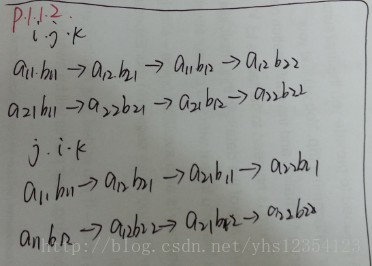 P.1.1.2.
i.j.k
a₁₁.b₁₁ → a₁₂.b₂₁ → a₁₁b₁₂ → a₁₂b₂₂
a₂₁b₁₁ → a₂₂b₂₁ → a₂₁b₁₂ → a₂₂b₂₂
j.i.k
a₁₁b₁₁ → a₁₂b₂₁ → a₂₁b₁₁ → a₂₂b₂₁
a₁₁b₁₂ → a₁₂b₂₂ → a₂₁b₁₂ → a₂₂b₂₂
http://blog.csdn.net/yhs12354123